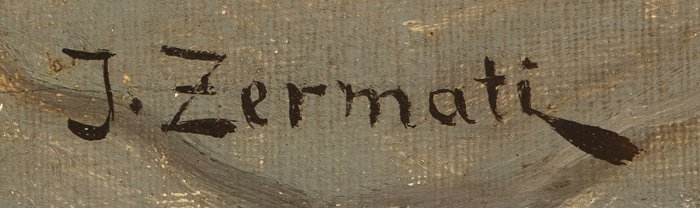 J. Zermati